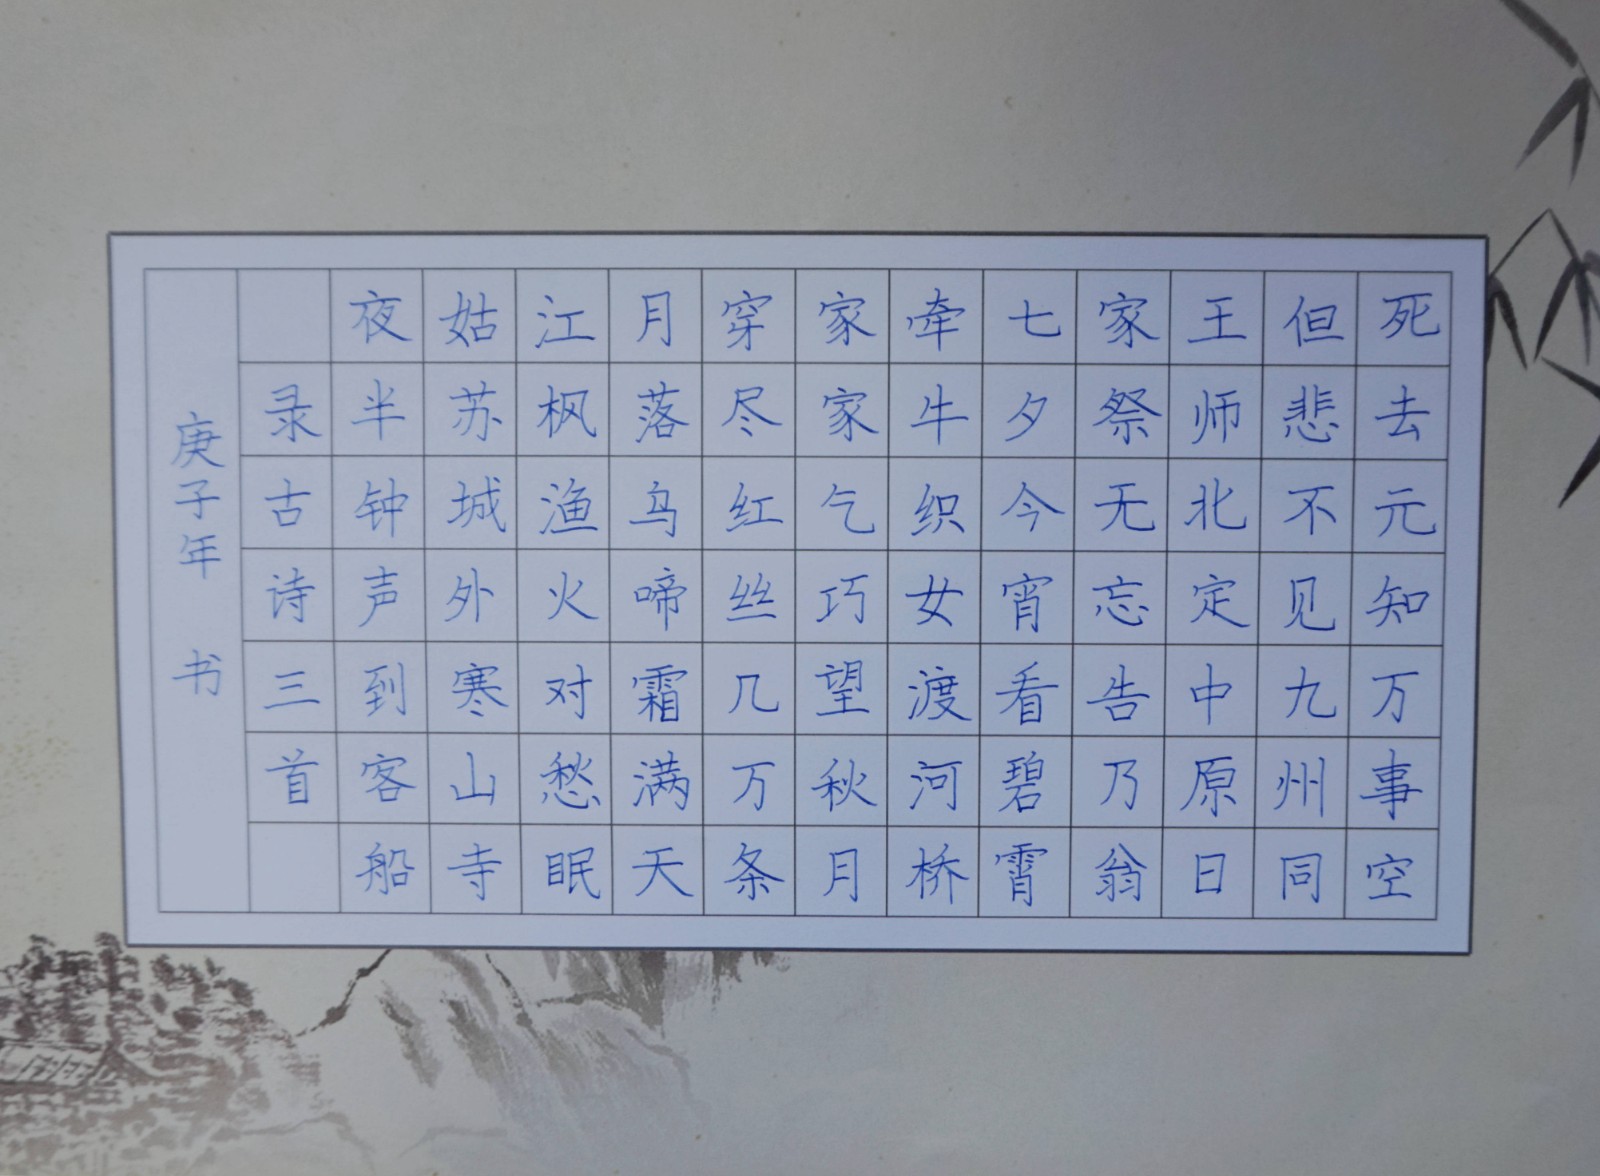 死去元知万事空
但悲不见九州同
王师北定中原日
家祭无忘告乃翁
七夕今宵看碧霄
牵牛织女渡河桥
家家乞巧望秋月
穿尽红丝几万条
月落乌啼霜满天
江枫渔火对愁眠
姑苏城外寒山寺
夜半钟声到客船
录古诗三首
庚子年 书